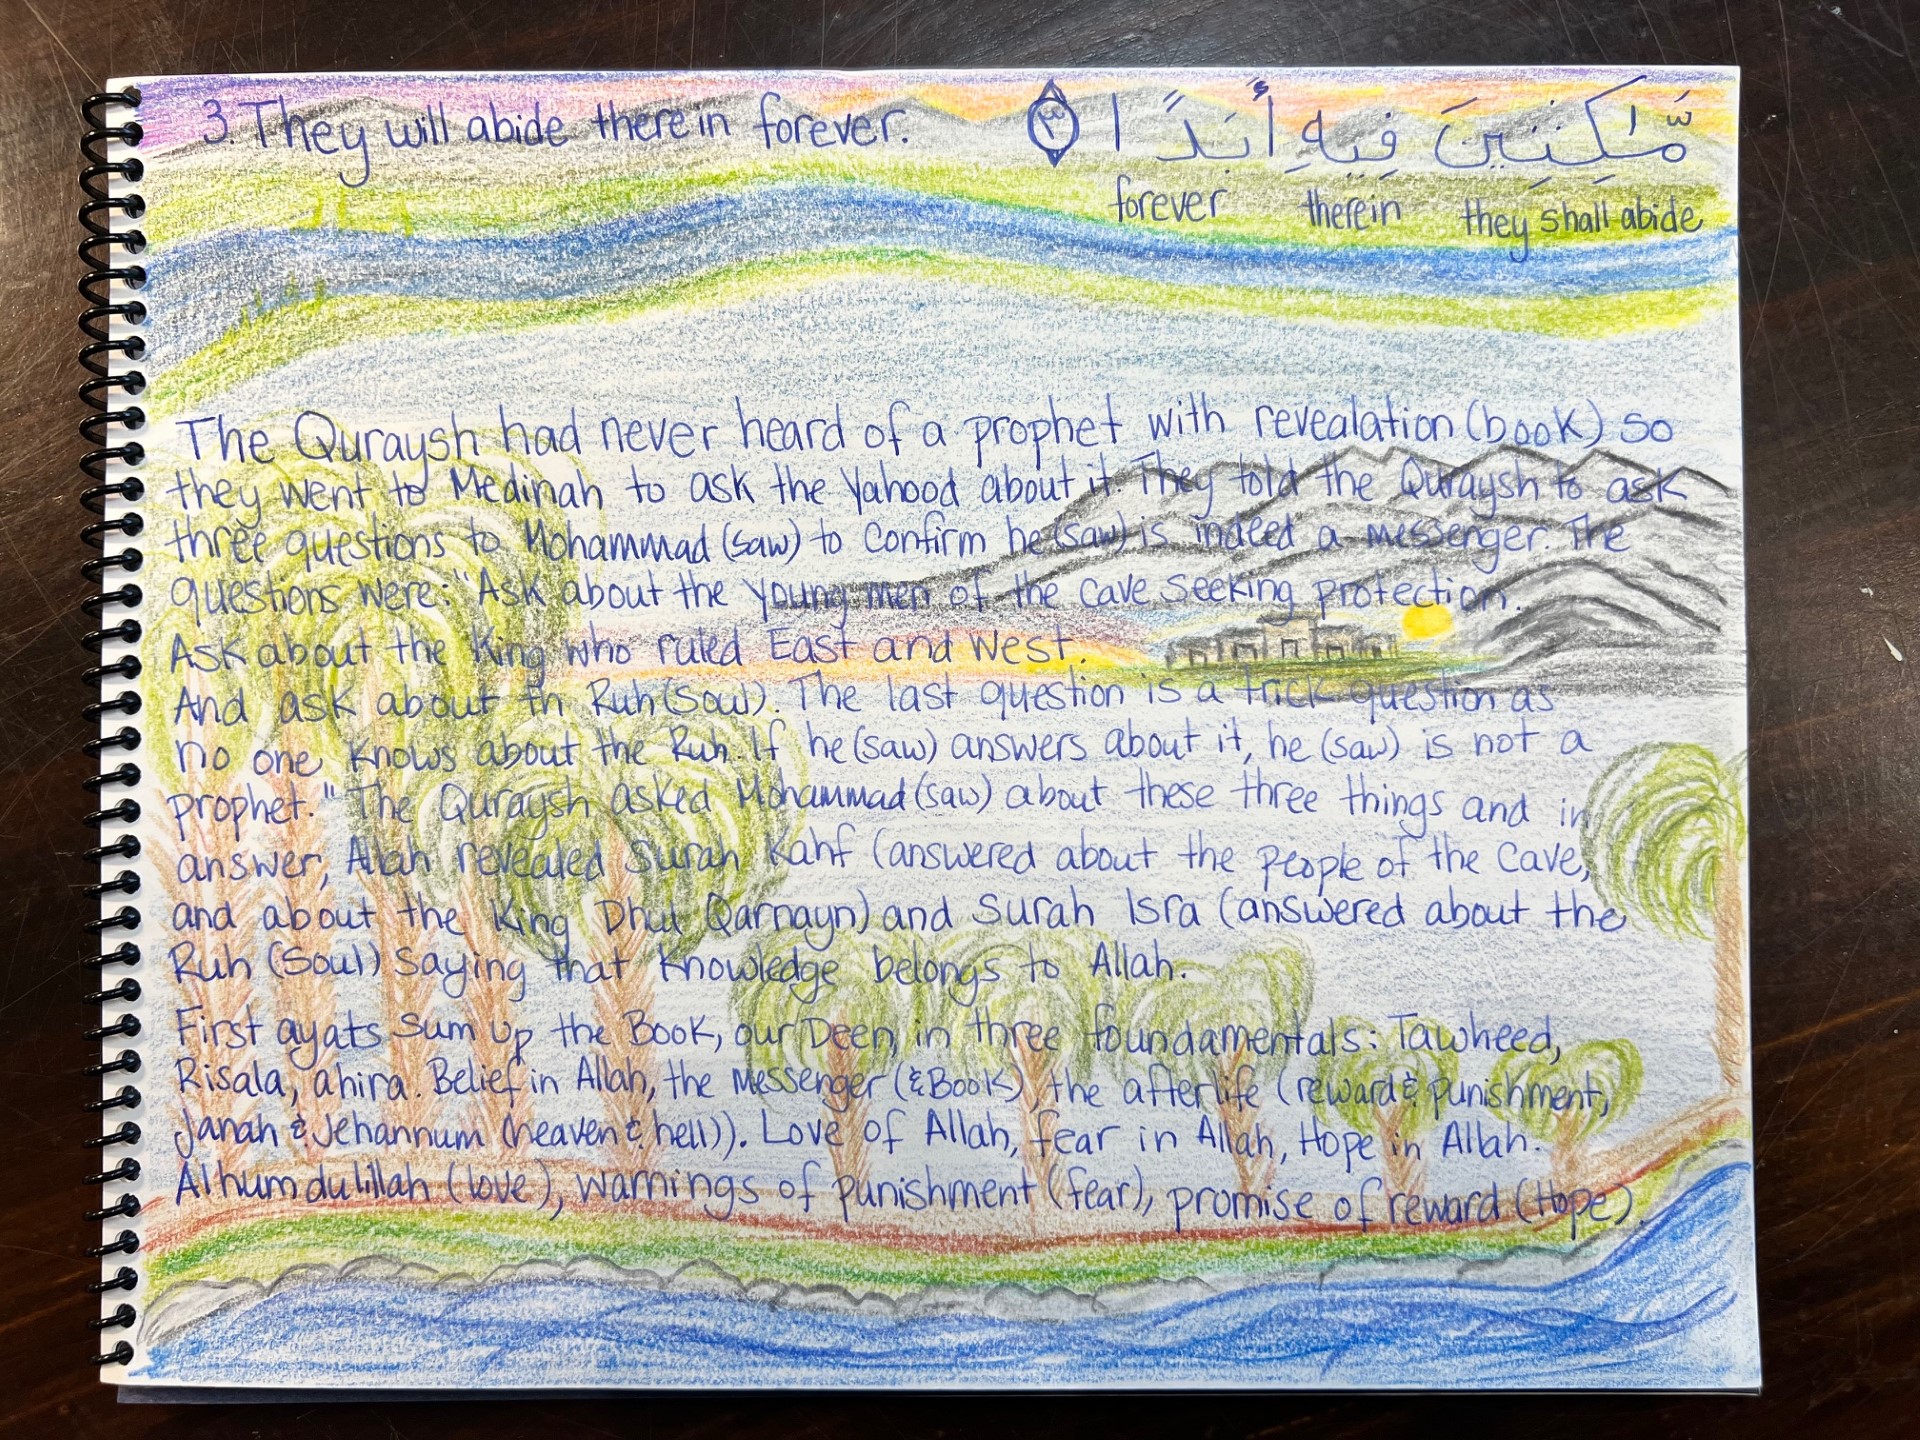 3. They will abide therein forever.
مَّـٰكِثِينَ فِيهِ أَبَدًا ٣
forever therein they shall abide
The Quraysh had never heard of a prophet with revealation (book) so
they went to Medinah to ask the Yahood about it. They told the Quraysh to ask
three questions to Mohammad (saw) to confirm he (saw) is indeed a messenger. The
questions were: "Ask about the young men of the cave seeking protection.
Ask about the King who ruled East and West.
And ask about th Ruh (soul). The last question is a trick question as
no one knows about the Ruh. If he (saw) answers about it, he (saw) is not a
prophet." The Quraysh asked Mohammad (saw) about these three things and in
answer, Allah revealed Surah Kahf (answered about the people of the cave,
and about the King Dhul Qarnayn) and Surah Isra (answered about the
Ruh (soul) saying that knowledge belongs to Allah.
First ayats sum up the Book, our Deen, in three foundamentals: Tawheed,
Risala, ahira. Belief in Allah, the Messenger (& Book), the afterlife (reward & punishment,
Janah & Jehannum (heaven & hell)). Love of Allah, fear in Allah, Hope in Allah.
Alhumdulillah (love), warnings of punishment (fear), promise of reward (Hope).